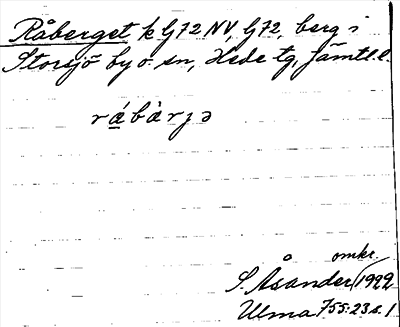 Råberget k G72 NV, G72, berg i
Storsjö by o. sn, Hede tg, Jämtl. l.
rábàrjə
omkr.
S. Åsander 1922
Ulma 755:23 s. 1